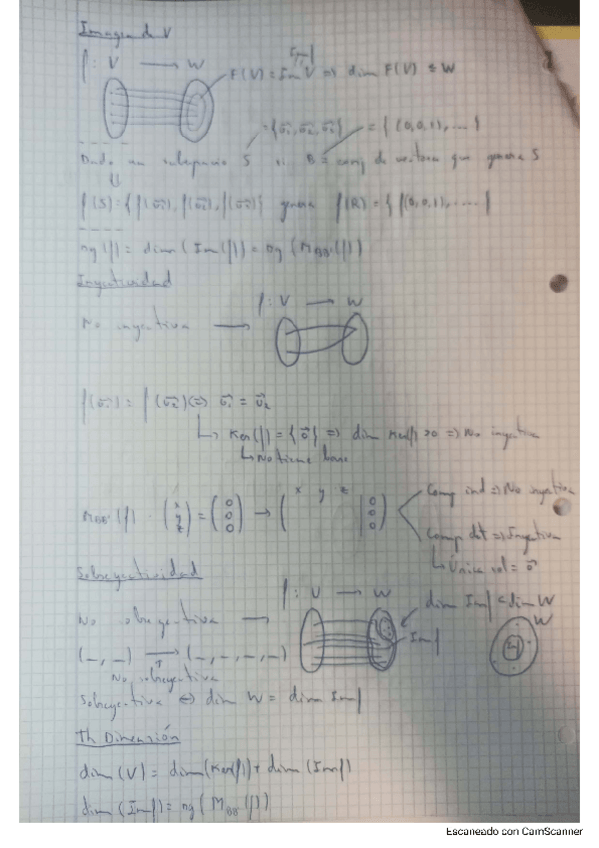 Imagen de V
f: V → W
F(V) = Im V ⇒ dim F(V) ≤ W
Imf
= {v⃗₁, v⃗₂, v⃗₃} = { (0,0,1), .... }
Dado un subespacio S si B = conj de vectores que genera S
⇓
f(S) = { f(v⃗₁), f(v⃗₂), f(v⃗₃) } genera f(R) = { f(0,0,1), ..... }
rg(f) = dim (Im(f)) = rg (M_BB'(f))
Inyectividad
f: V → W
No inyectiva →
f(v⃗₁) = f(v⃗₂) ⇔ v⃗₁ = v⃗₂
↳ Ker(f) = {0⃗} ⇒ dim Kerf > 0 ⇒ No inyectiva
↳ No tiene base
x y z
M_BB'(f) · (x y z) = (0 0 0) → ( | 0 0 0 )
Comp ind ⇒ No inyectiva
Comp det ⇒ Inyectiva
↳ Única sol = 0⃗
Sobreyectividad
f: V → W
dim Imf < dim W
No sobreyectiva →
Imf
W
Imf
(_, _) → (_, _, _, _)
No sobreyectiva
Sobreyectiva ⇔ dim W = dim Imf
Th Dimensión
dim (V) = dim(Ker(f)) + dim (Imf)
dim (Imf) = rg (M_BB'(f))
Escaneado con CamScanner